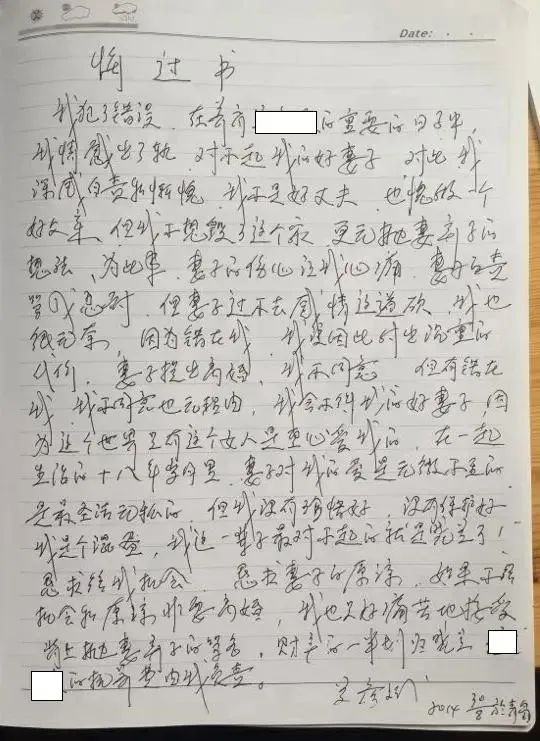 Date:
悔过书
我犯了错误,在养育的重要的日子中,
我情感出了轨,对不起我的好妻子,对此我
深感自责和惭愧,我不是好丈夫,也愧做一个
好父亲,但我不想毁了这个家,更无抛妻弃子的
想法,为此事,妻子的伤心让我心痛,妻的责
骂我忍耐,但妻子过不去感情这道坎,我也
很无奈,因为错在我,我要因此付出沉重的
代价,妻子提出离婚,我不同意,但有错在
我,我不同意也无理由,我舍不得我的好妻子,因
为这个世界只有这个女人是真心爱我的,在一起
生活的十八年岁月里,妻子对我的爱是无微不至的
是最圣洁无私的,但我没有珍惜好,没有保护好
我是个混蛋,我这一辈子最对不起的就是兰了!
恳求给我机会,恳求妻子的原谅,如果不给
机会和原谅非要离婚,我也只好痛苦地接受
背上抛妻弃子的骂名,财产的一半划归兰
的抚养费由我负责。
2014 30/8 于青岛